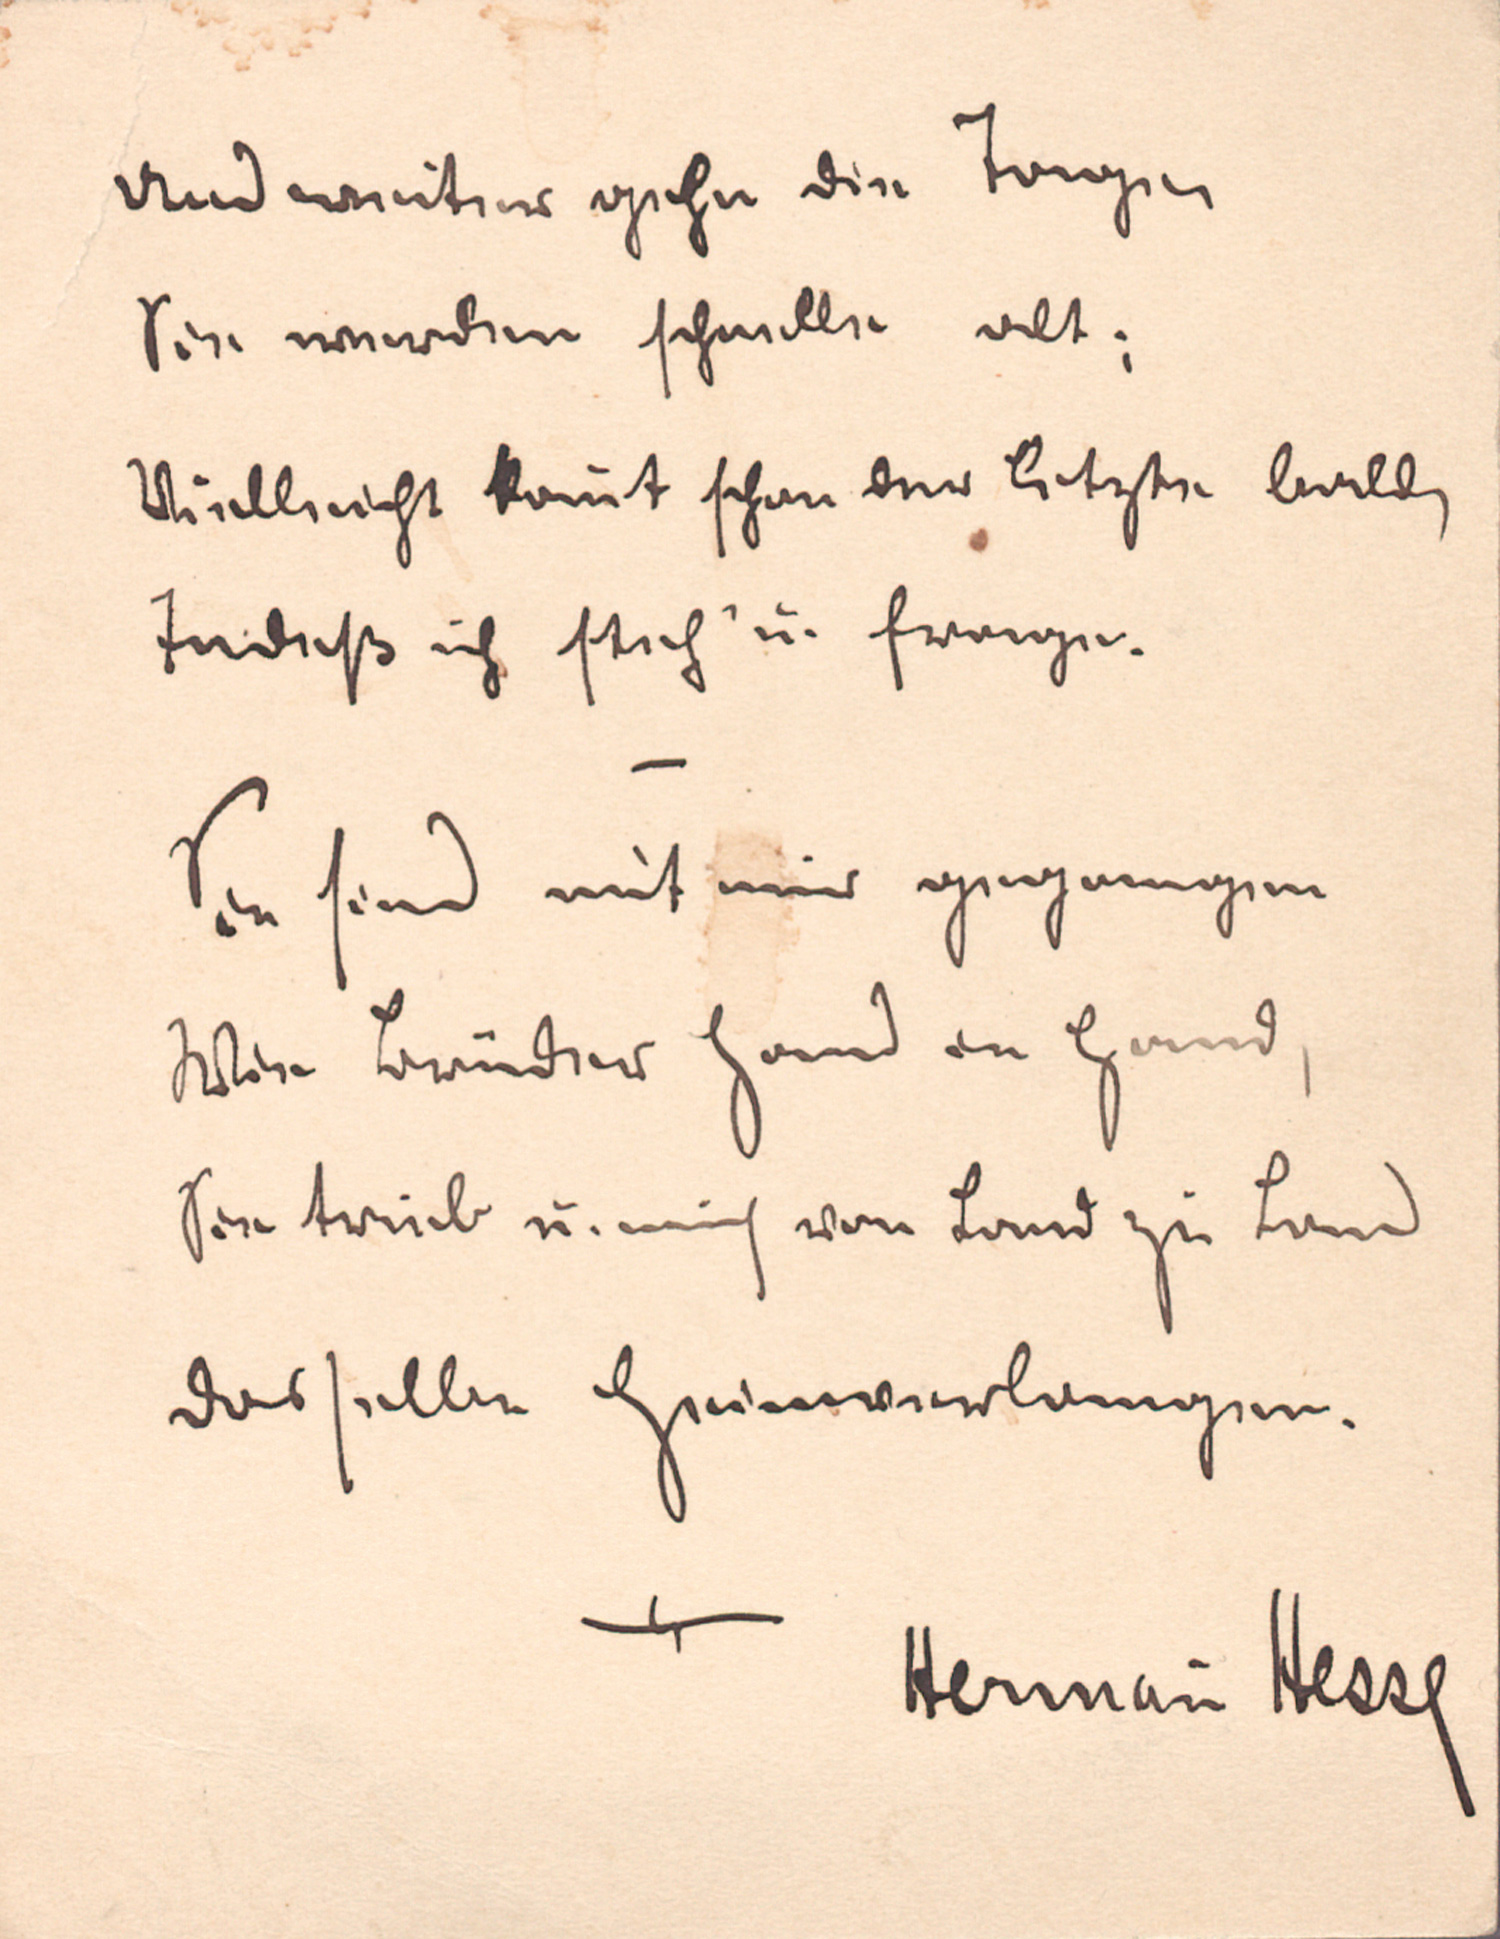 Und weiter gehn die Tage,
Sie werden schnelle alt;
Vielleicht kom̅t schon der letzte bald,
Indeß ich steh' u. frage.
—
Sie sind mit mir gegangen
Wie Brüder Hand in Hand,
Sie trieb u. mich von Land zu Land
Dasselbe Heimverlangen.
Herman̅ Hesse